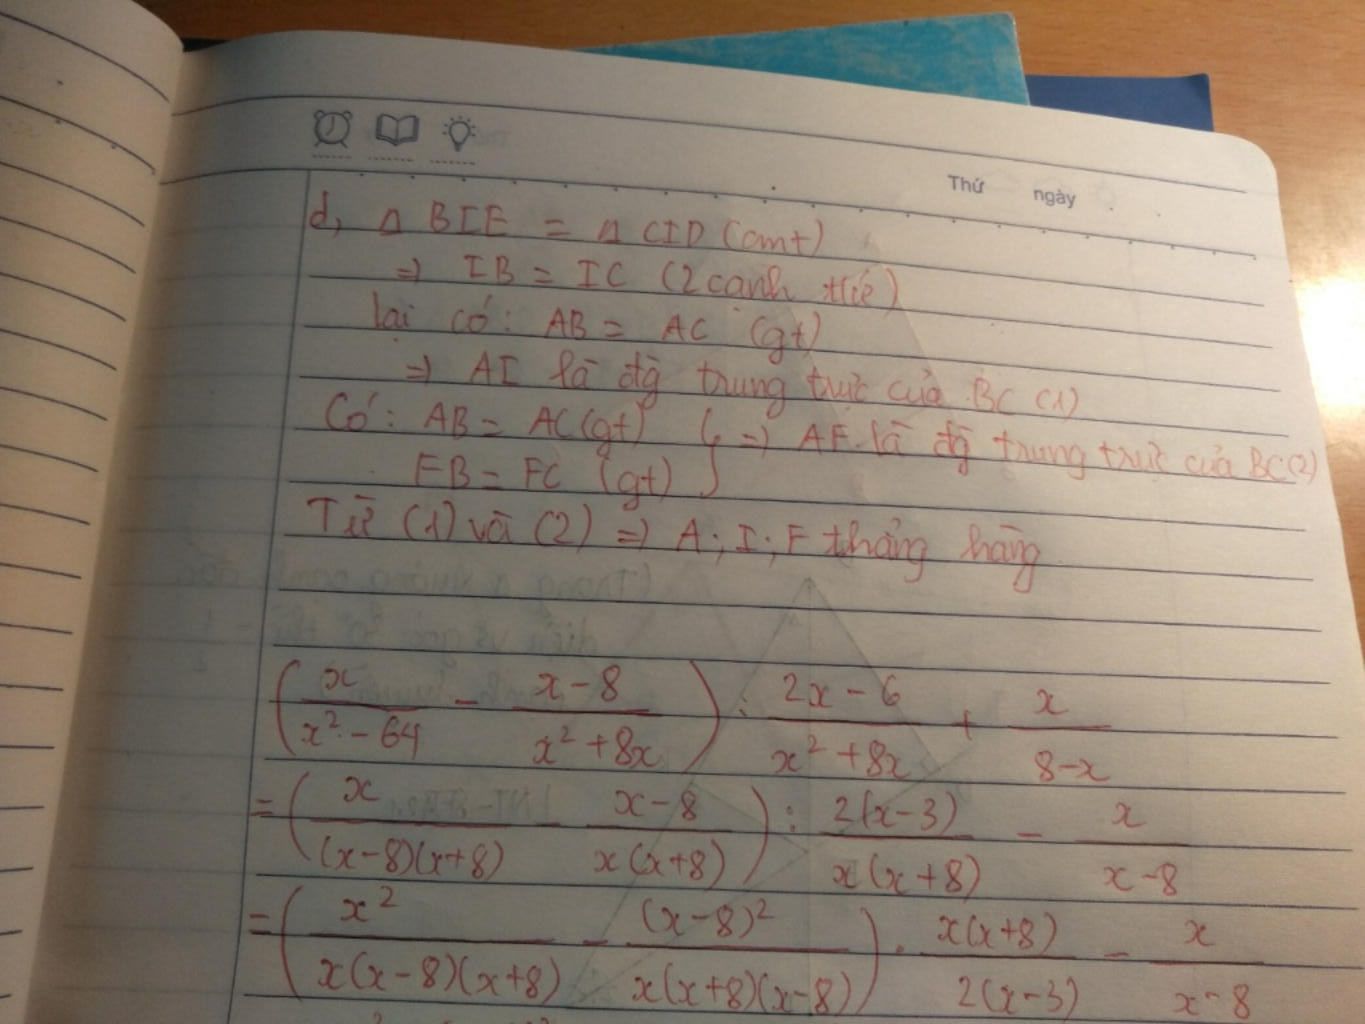 Thứ ngày
d, Δ BIE = Δ CID (cmt)
=> IB = IC (2 cạnh tứ)
lại có: AB = AC (gt)
=> AI là đg trung trực của BC (1)
Có: AB = AC (gt) } => AF là đg trung trực của BC (2)
FB = FC (gt)
Từ (1) và (2) => A; I; F thẳng hàng
(x/(x² - 64) - (x - 8)/(x² + 8x)) : (2x - 6)/(x² + 8x) + x/(8-x)
= (x/((x-8)(x+8)) - (x-8)/(x(x+8))) : 2(x-3)/(x(x+8)) - x/(x-8)
= (x²/(x(x-8)(x+8)) - (x-8)²/(x(x+8)(x-8))) . x(x+8)/(2(x-3)) - x/(x-8)